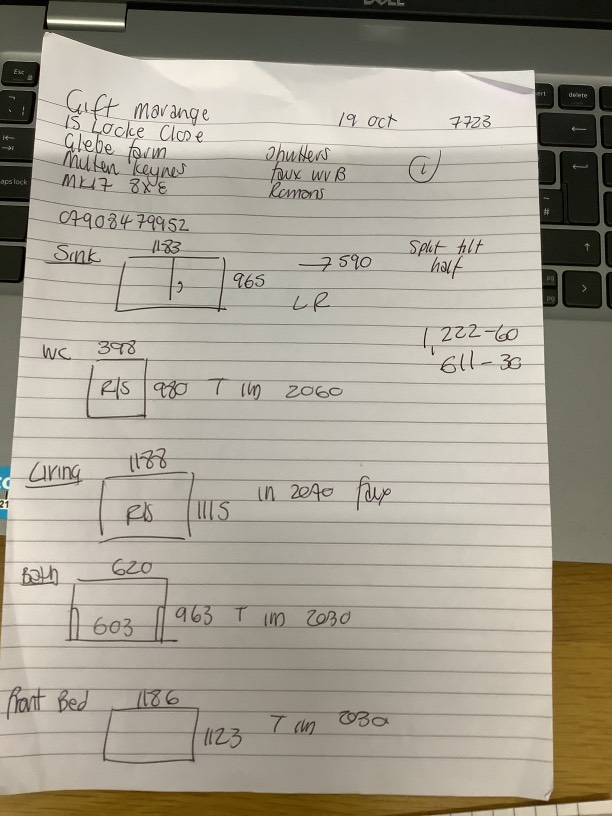 DELL
Gift marange
15 Locke Close
Glebe farm
Milten Keynes
MK17 8XE
07908479952
19 Oct
7723
Shutters
faux w B
Romons
i
Sink
1183
965
→ 590
LR
Split tilt
half
1,222-60
611-30
WC
398
R/S
980 T in 2060
Living
1188
R/S
1115
in 2040 faux
Bath
620
603
963 T in 2030
front Bed
1186
1123
T in 2030
Esc
caps lock
delete
#